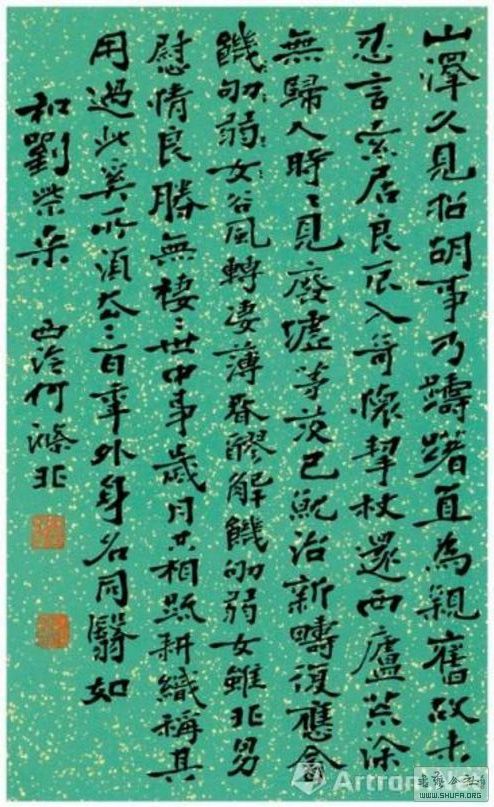 山澤久見招胡事乃躊躇直為親舊故未
忍言索居良辰入奇懷挈杖還西廬荒涂
無歸人時〻見廢墟茅茨已就治新疇復應畬
饑劬弱女谷風轉淒薄春醪解饑劬弱女雖非男
慰情良勝無棲〻世中事歲月共相踈耕織稱其
用過此奚所須去〻百年外身名同翳如
和劉柴桑 西泠何滌非
Artron
WWW.SHUFA.ORG